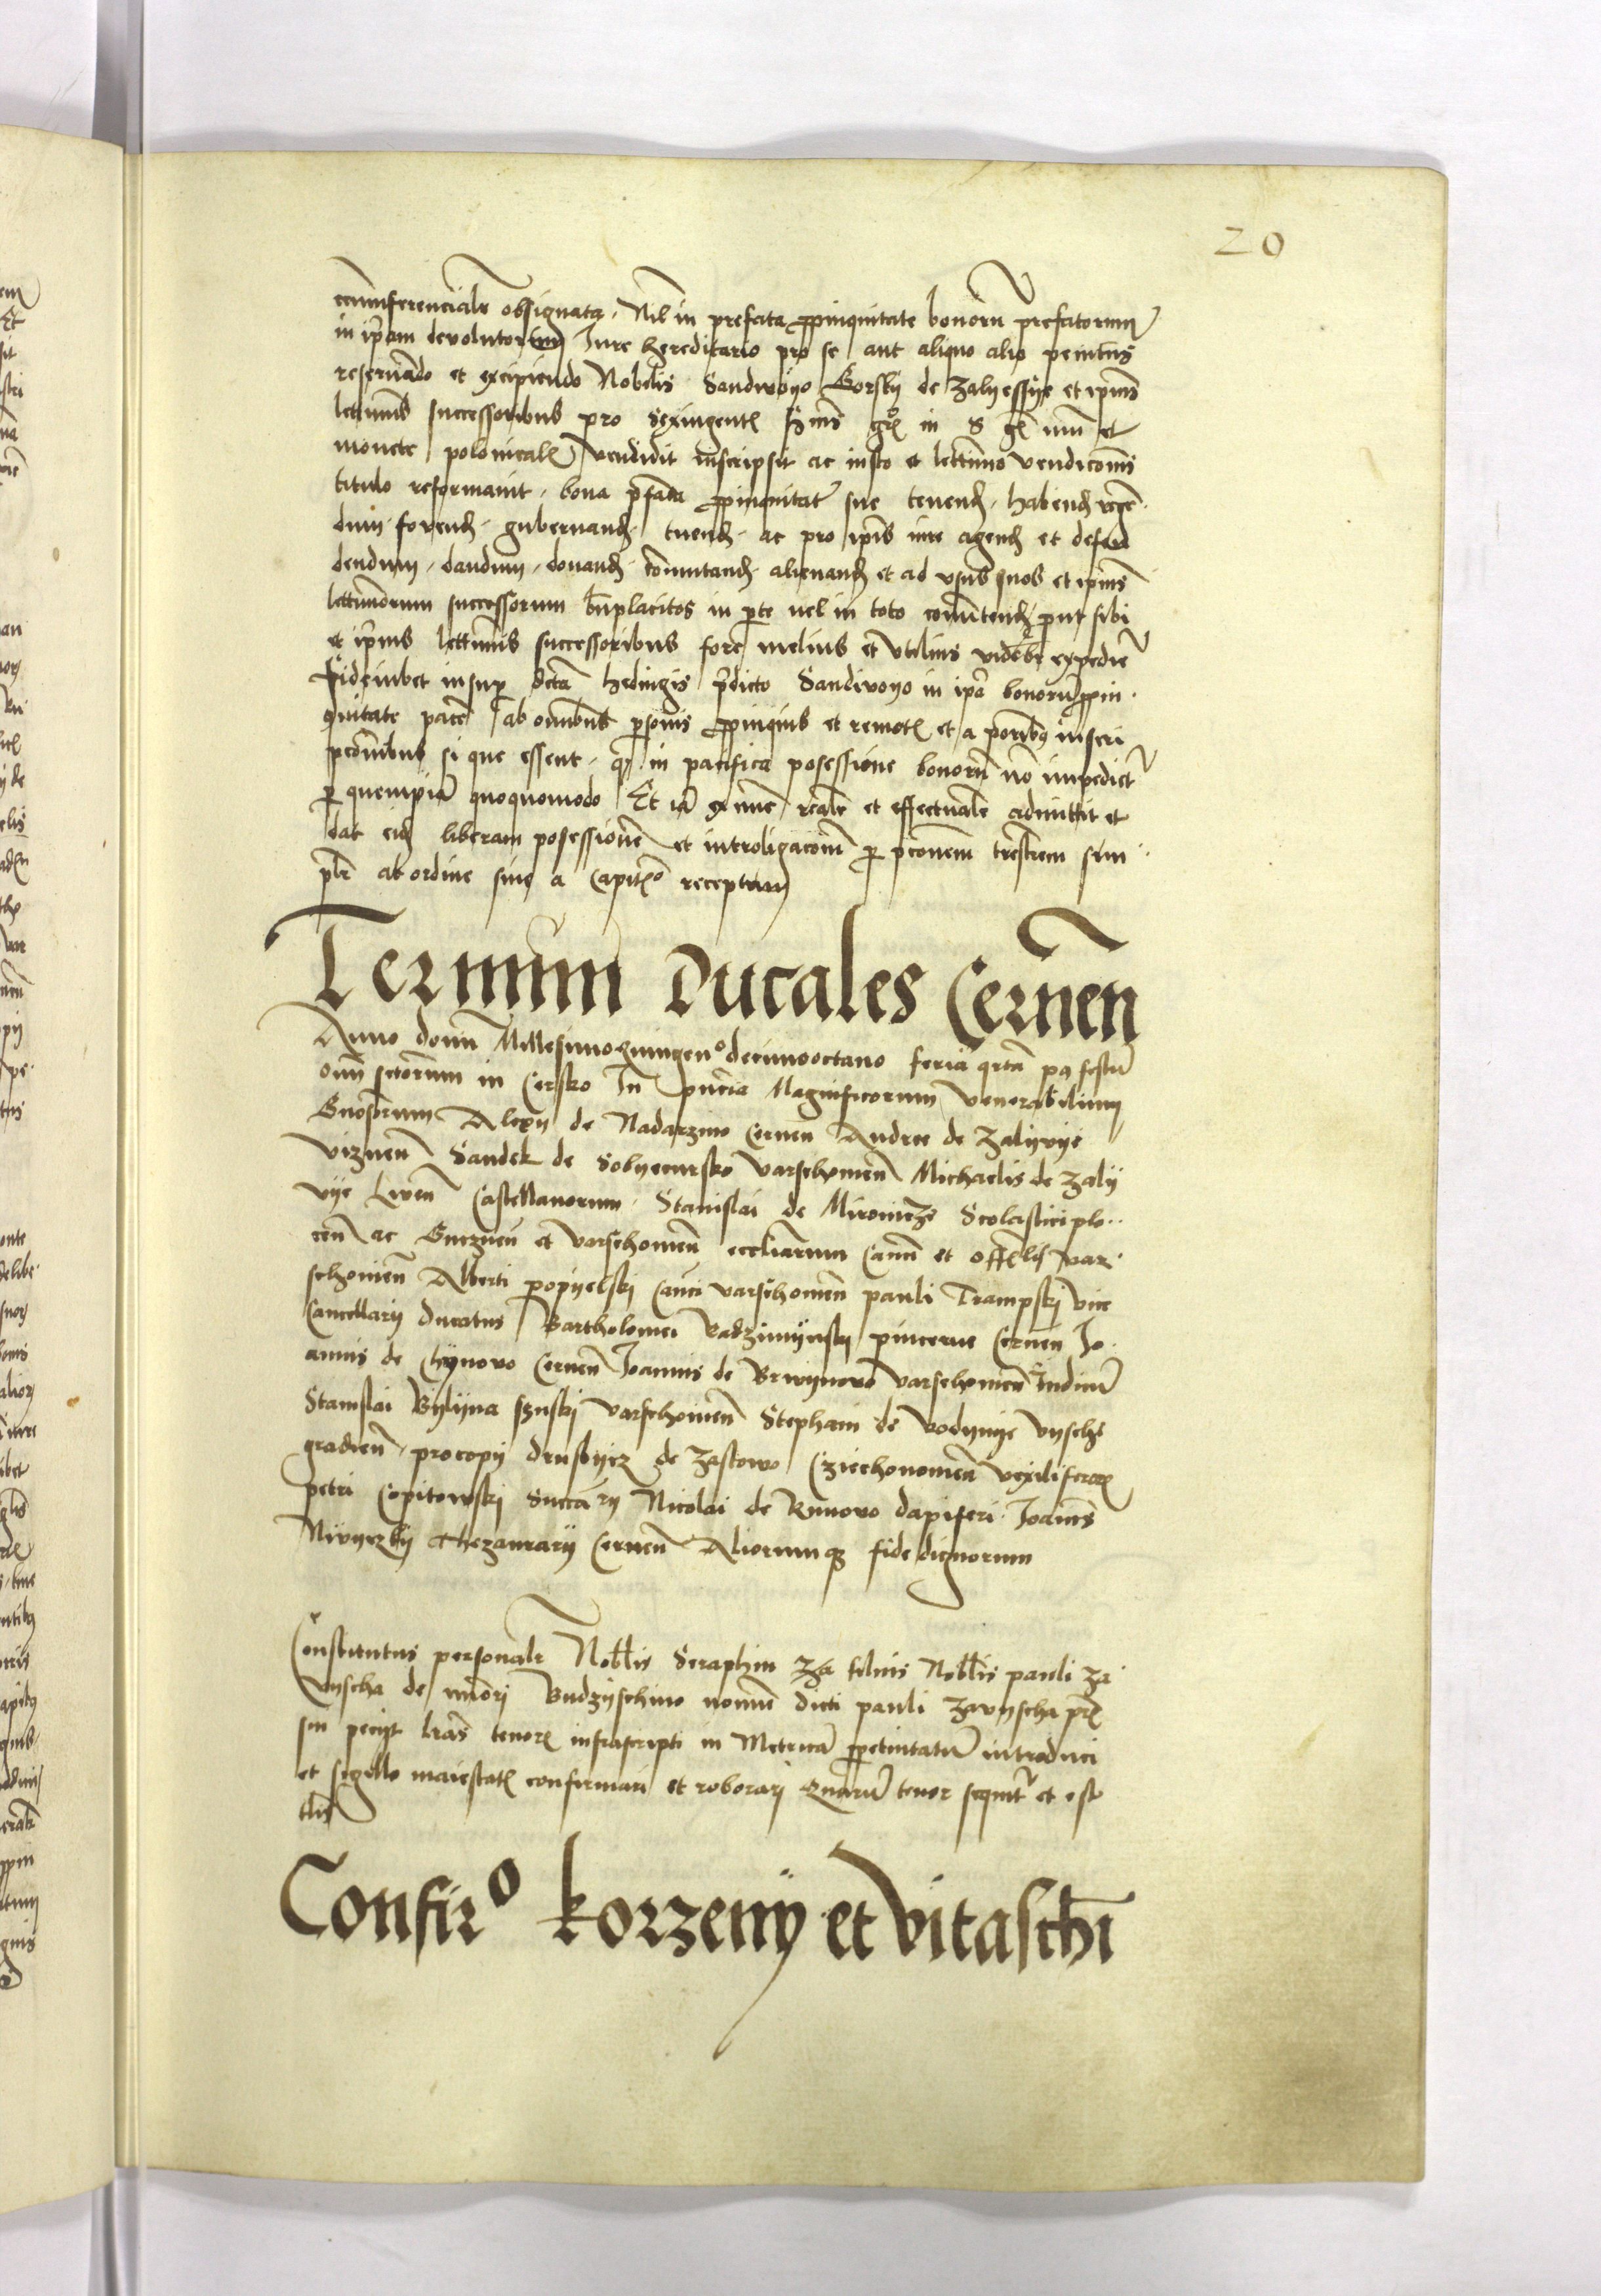 20
circumferencialr obsignata. Nil in prefata ppinquitate bonorũ prefatorum
in ipam devolutorum Iure hereditario pro se aut aliquo alio penitus
reservãdo et excipiendo Nobilis Sandivoyo Gorsky de Zalyessye et ipius
lettimis successoribus pro sexingent in et
monete polonicalẽ vendidit inscripsit ac iusto et lettimo vendicõnis
titulo reformavit. bona pfata ppinquitatẽ sue tenend. habend
dum. forend. gubernand. tuend. ac pro ipis iure agend et defen
dendum. dandum. donand. cõmutand. alienand et ad usus suos et ipius
lettimorum successorum bñplacitos in pte vel in toto cõvitend. put sibi
et ipius lettimis successoribus fore melius et utilius videbr expedire
Fideiubet insup dcta hedingis pdicto Sandivoyo in ipa bonorũ ppin.
quitate pacẽ ab omibus psonis ppinquis et remotẽ et a poribq inscri
pcõnibus si que essent. q in pacifica posessione bonorũ nõ impedietr
p quempiã quoquomodo Et iã ex nunc realr et effectualr admittit et
dat eid liberam posessionẽ et introligacõnẽ p pconem trestrem sim
plr ab ordine sive a capitẽo receptum
Termini Ducales Cernen
Anno domi Millesimoquingenº decimooctavo feria qrta pq festũ
omi sctorum in Cersko In pncia Magnificorum venerabilium
Gnosorum Alexy de Nadarzino Cernen Andree de Zalywye
Viznen Sandek de Solyecursko Varschovien Michaelis de Zaly
vye Liven Castellanorum. Stanislai de Mirovicze Scolastici plo..
cen ac Gneznen et Varschovien eccliarum Canci et offclis var.
schovien Alberti popyelskj Canci varschovien pauli Trampskj vice
Cancellary Ducatus Bartholomei Radziminsky pincerne Cernen Jo.
annis de Chynovo Cernen Joannis de Brwynovo varschovien Iudicũ
Stanislai Bylyna varschovien Stephani de Vodynye vysche
gradien. procopy Drusbycz de Zastowo Cziechonovien vexiliferorẽ
petri Copitowskj Succary Nicolai de Rzunovo dapiferi. Joanis
Nivyczky Thezaurary Cernen Aliorumq fide dignorum
Constitutus personalr Nobilis Seraphin Za filius Nobilis pauli Za
vyscha de Budzyschino noie dicti pauli Zavyscha prẽ
sui peciit lras tenorẽ infrascripti in Metricã ppetuitatũ introduci
et sigillo maiestatẽ confirmari et roborarj Quarũ tenor sequitr et est
tlis
Confirº korzeny et vitaschi